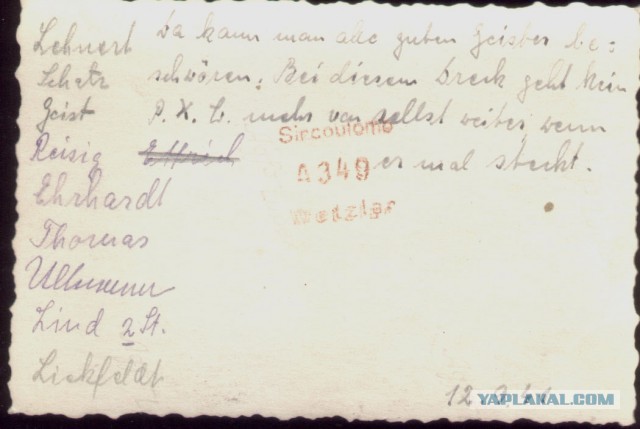 Lehnert
Schatz
Geist
Reisig
Ehrhardt
Thomas
Ullmann
Lind 2 St.
Liekfeldt
Da kann man alle guten Geister be=
schwören. Bei diesem Dreck geht kein
P.K.W. mehr von selbst weiter wenn
er mal steckt.
Sircoulomb
A349
Wetzlar
12.
YAPLAKAL.COM